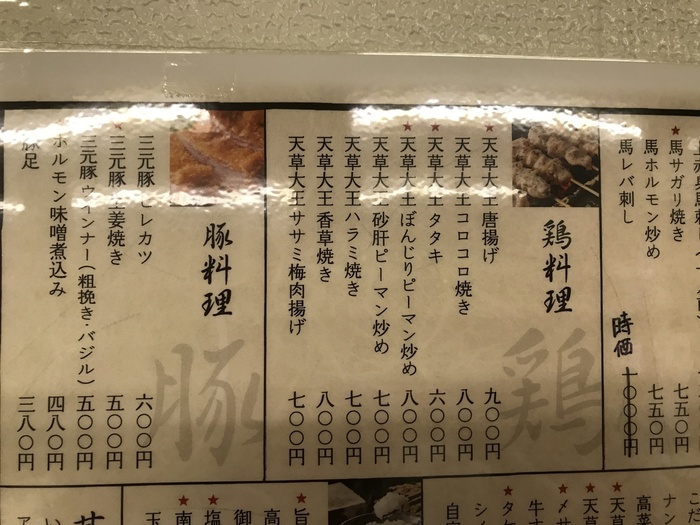 馬サガリ焼き 七五〇円
馬ホルモン炒め 七五〇円
馬レバ刺し 時価 一〇〇〇円
鶏料理
天草大王唐揚げ 九〇〇円
天草大王コロコロ焼き 八〇〇円
天草大王タタキ 六〇〇円
天草大王ぼんじりピーマン炒め 八〇〇円
天草大王砂肝ピーマン炒め 七〇〇円
天草大王ハラミ焼き 七〇〇円
天草大王香草焼き 八〇〇円
天草大王ササミ梅肉揚げ 七〇〇円
鶏
豚料理
三元豚ヒレカツ 六〇〇円
三元豚生姜焼き 五〇〇円
三元豚ウインナー(粗挽き・バジル) 五〇〇円
ホルモン味噌煮込み 四八〇円
豚足 三八〇円
豚